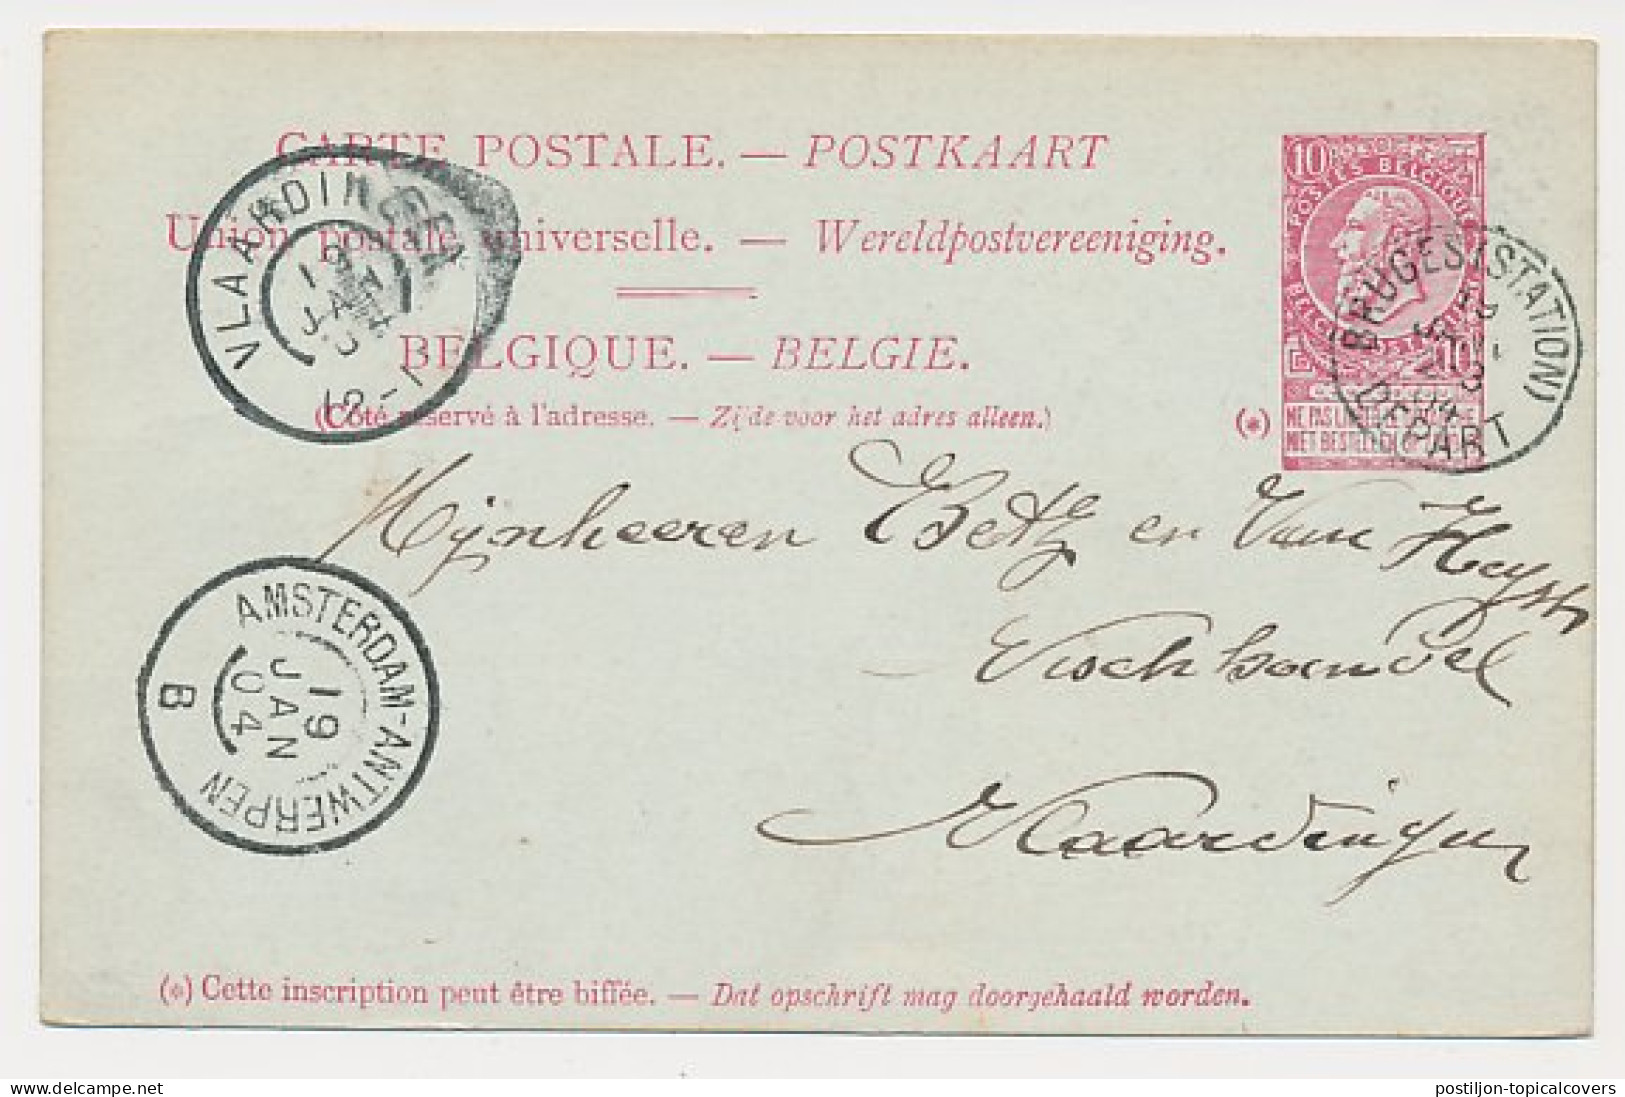 CARTE POSTALE. — POSTKAART
Union postale universelle. — Wereldpostvereeniging.
BELGIQUE. — BELGIE.
(Côté réservé à l'adresse. — Zijde voor het adres alleen.)
(*)
10 POSTES BELGIQUE
10
NE PAS LIVRER LE DIMANCHE
NIET BESTELLEN OP ZONDAG
BRUGES (STATION)
DEPART
VLAARDINGEN
19
JAN
04
12-1
Mijnheeren Betz en Van Heyst
Vischhandel
Vlaardingen
AMSTERDAM-ANTWERPEN
19
JAN
04
B
(*) Cette inscription peut être biffée. — Dat opschrift mag doorgehaald worden.
postiljon-topicalcovers